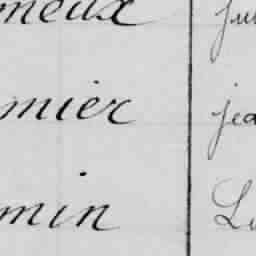 meux
mier jea
min Lu